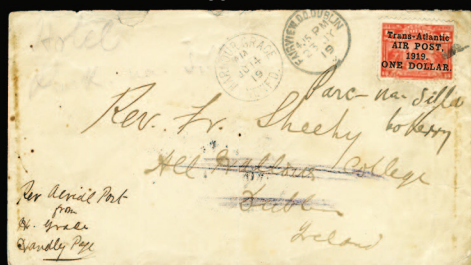 Hotel
HARBOUR GRACE
JU 14
19
FAIRVIEW D.O. DUBLIN
4.15 PM
19
Trans-Atlantic
AIR POST,
1919.
ONE DOLLAR.
Parc-na-Silla
Co Kerry
Rev. Fr. Sheehy
All Hallows College
Dublin
Ireland
Per Aerial Post
from
H. Grace
Handley Page